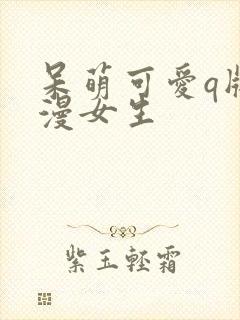 呆萌可愛q版
漫女生
紫玉輕霜